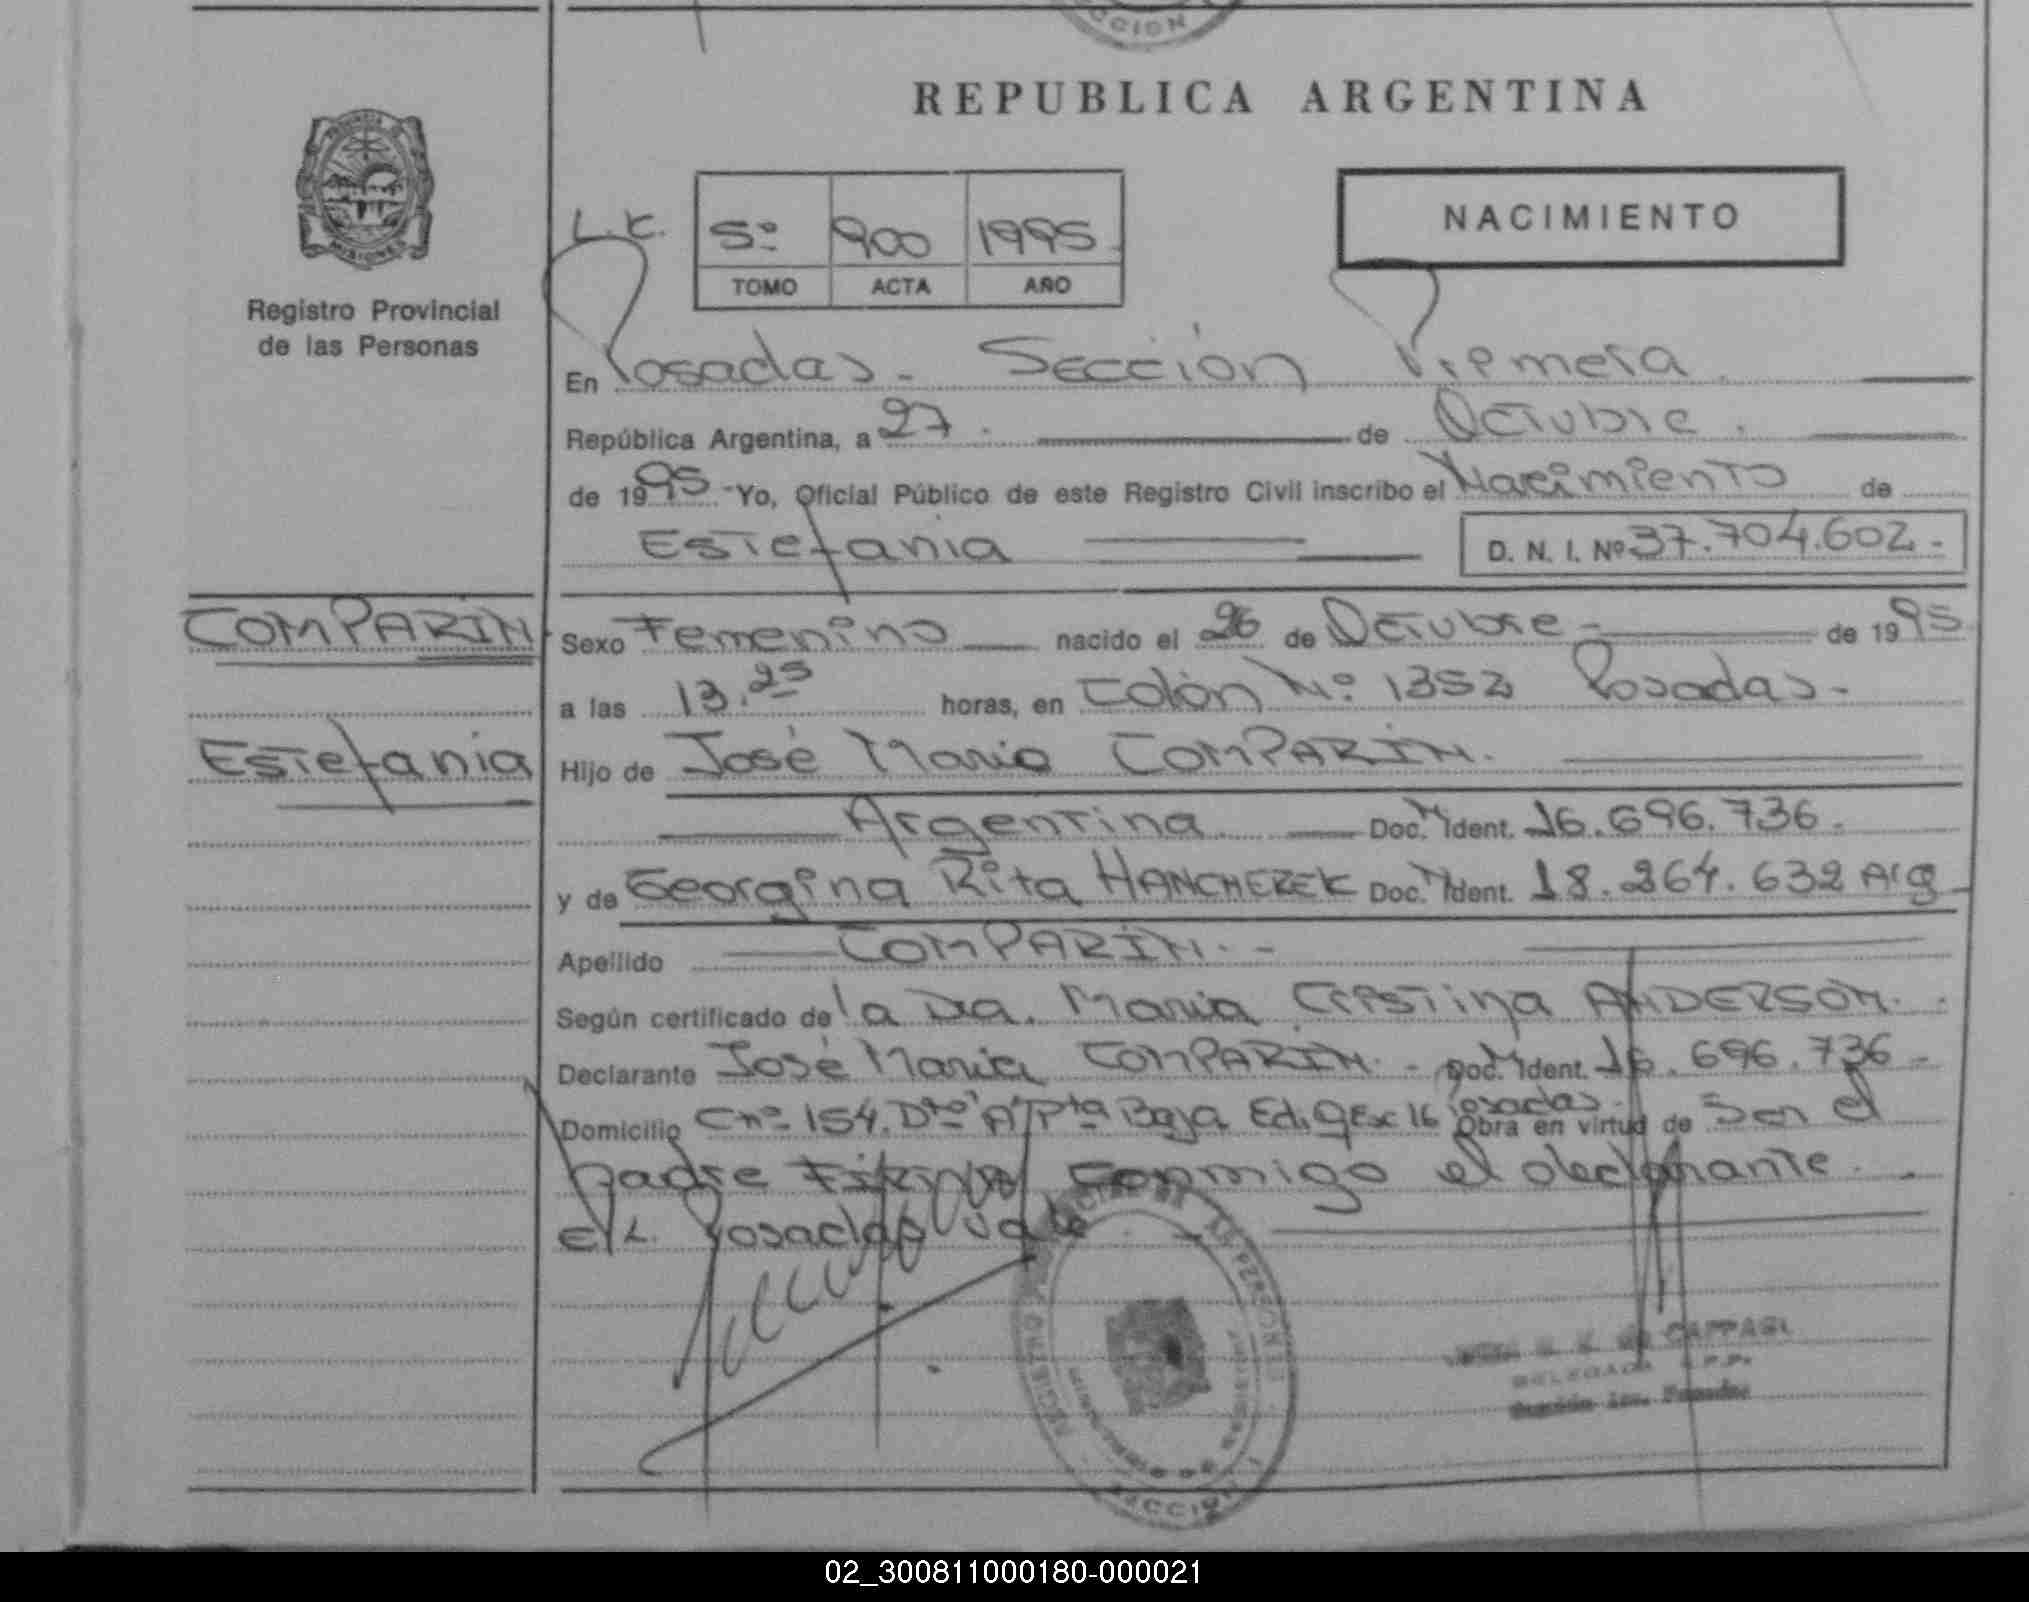 CCION
REPUBLICA ARGENTINA
NACIMIENTO
L.E. 5º 900 1995
TOMO ACTA AÑO
PROVINCIA DE MISIONES
Registro Provincial
de las Personas
En Posadas. Sección Primera
República Argentina, a 27. de Octubre.
de 1995 Yo, Oficial Público de este Registro Civil inscribo el Nacimiento de
Estefania D. N. I. Nº 37.704.602.-
COMPARIN
Sexo Femenino nacido el 26 de Octubre- de 1995
a las 13.25 horas, en Colón Nº 1353 Posadas-
Estefania
Hijo de José Maria COMPARIN.
Argentina Doc. Ident. 16.696.736.
y de Georgina Rita HANCHEREK Doc. Ident. 18.264.632 Arg
Apellido COMPARIN.-
Según certificado de la Dra. Maria Cristina ANDERSON.
Declarante José Maria COMPARIN.- Doc. Ident. 16.696.736-
Posadas.
Domicilio Chº 154. Dtº "A" Pta Baja Edi. Obra en virtud de Ser el
padre Firma conmigo el declarante.
E/L. Posadas Vale
REGISTRO PROVINCIAL DE LAS PERSONAS
SECCION 1
CAPPASI
DELEGADA R.P.P.
Sección 1ra. Posadas
02_300811000180-000021